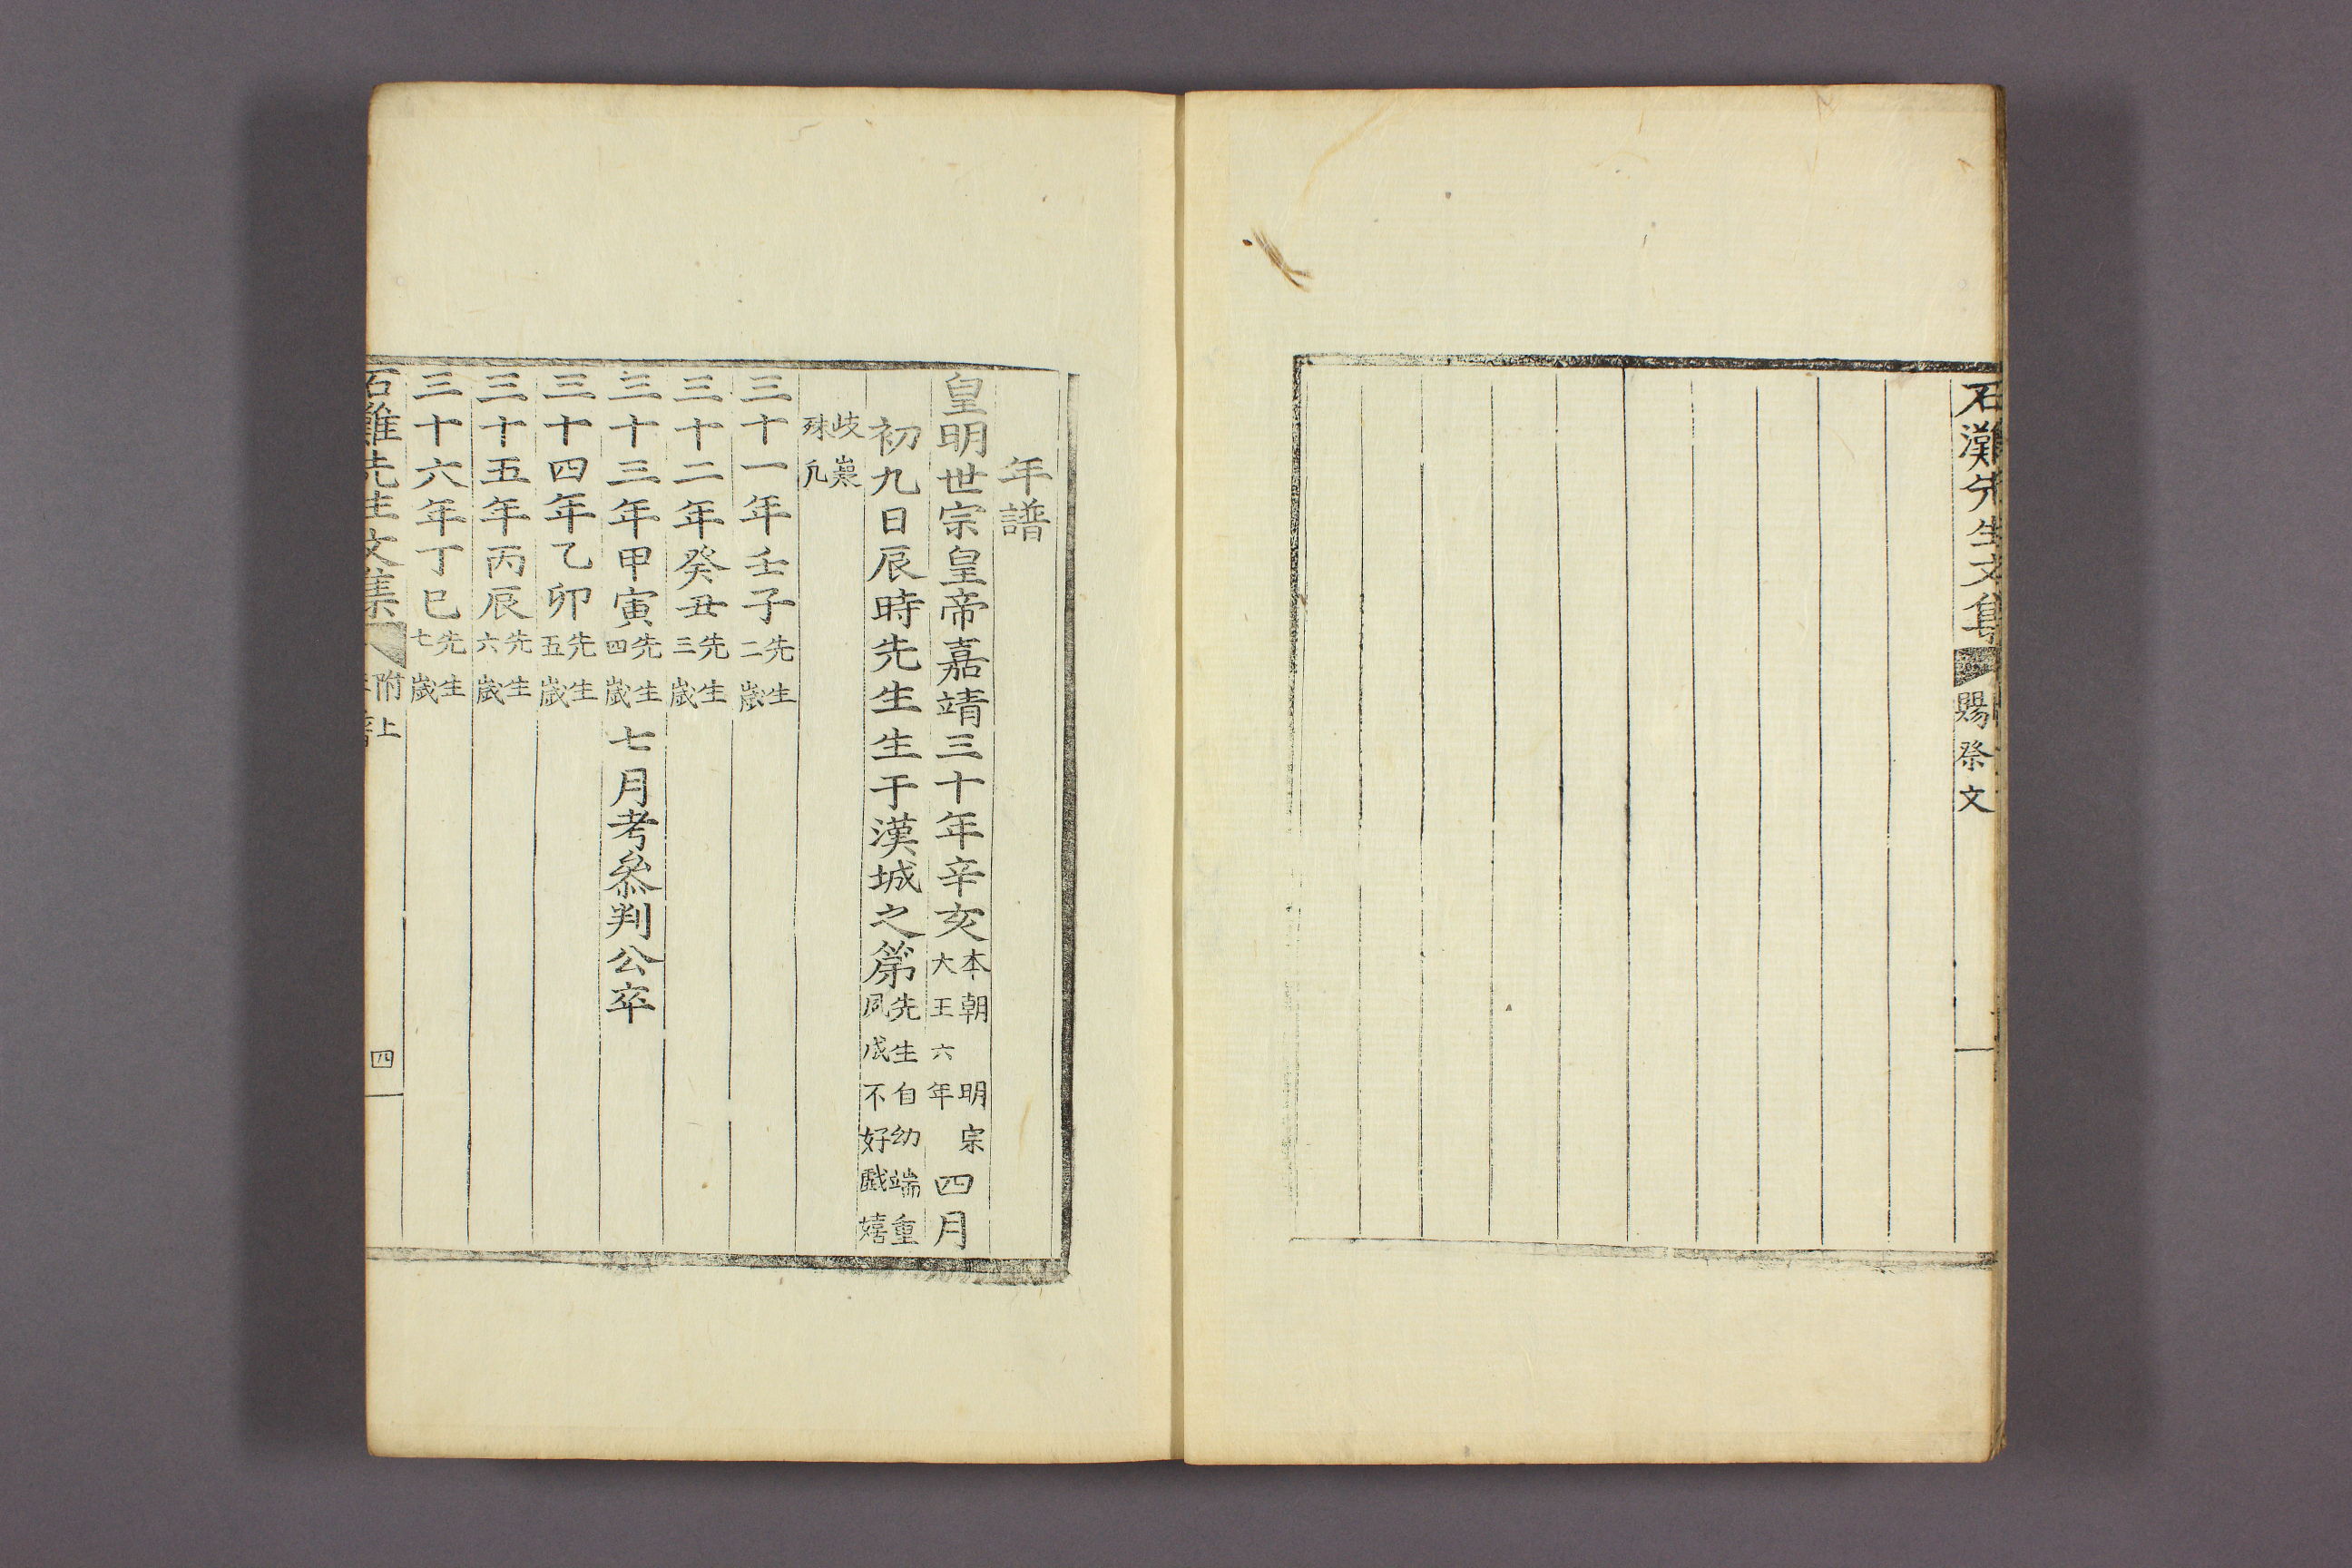 石灘先生文集 賜祭文
年譜
皇明世宗皇帝嘉靖三十年辛亥本朝 明宗大王六年四月
初九日辰時先生生于漢城之第先生自幼端重夙成不好戱嬉
岐嶷殊凡
三十一年壬子先生二歲
三十二年癸丑先生三歲
三十三年甲寅先生四歲 七月考叅判公卒
三十四年乙卯先生五歲
三十五年丙辰先生六歲
三十六年丁巳先生七歲
石灘先生文集 附上 四